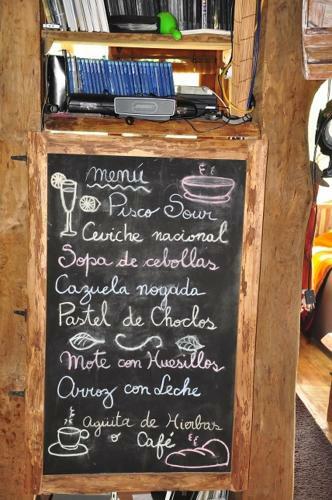 menú
Pisco Sour
Ceviche nacional
Sopa de cebollas
Cazuela nogada
Pastel de Choclos
Mote con Huesillos
Arroz con Leche
Agüita de Hierbas
o Café